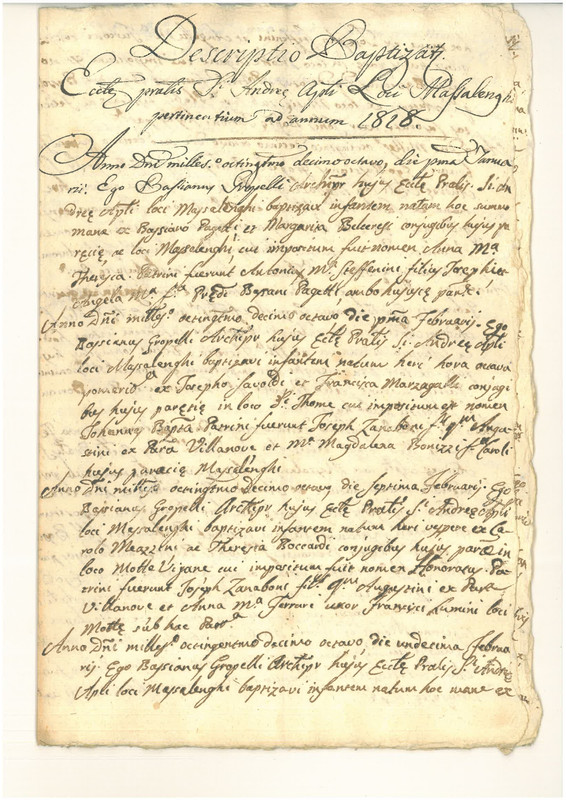 Descriptio Baptizat.
Ecclę pralis S. Andreę Apli Loci Massalenghi
pertinentium ad annum 1818.
Anno Dñi milles.º octingtmo decimo octavo, die pma Janua
rii. Ego Bassianus Gropelli Archipr hujus Ecclę Pralis S. An
dreę Apli loci Massalenghi baptizavi infantem natam hoc summo
mane ex Bassiano Pagetti et Margarita conjugibus hujus pa
ręcię ac loci Massalenghi, cui impositum fuit nomen Anna Mª
Theresia. Patrini fuerunt Antonius Mª Steffenini filius Josephi et
Angela Mª fª Prędi Bassani Pagetti ambo hujusce parę.
Anno Dñi milles.º octingtmo decimo octavo die pma Februarii. Ego
Bassianus Gropelli Archipr hujus Ecclę Pralis S. Andreę Apli
loci Massalenghi baptizavi infantem natum heri hora octava
pomerid.ª ex Josepho Savoldi et Francisca Marzagalli conjugi
bus hujus paręcię in loco S. Thome cui impositum est nomen
Johannes Bapta. Patrini fuerunt Joseph Zanaboni f. qm Augu
stini ex Para Villanove et Mª Magdalena Bonizzi fª Caroli
hujus paracię Massalenghi
Anno Dñi milles.º octingtmo decimo octavo die septima Februarii. Ego
Bassianus Gropelli Archipr hujus Ecclę Pralis S. Andreę Apli
loci Massalenghi baptizavi infantem natum heri vespere ex Ca
rolo Mazzini ac Theresia Boccardi conjugibus hujus parę in
loco Motte Vizane cui impositum fuit nomen Honoratus. Pa
trini fuerunt Joseph Zanaboni fil. qm Augustini ex Para
Villanove et Anna Mª Ferrari uxor Francisci Lumini loci
Mottę sub hac Parª
Anno Dñi milles.º octingentmo decimo octavo die undecima Februa
rii. Ego Bassianus Gropelli Archipr hujus Ecclę Pralis S. Andreę
Apli loci Massalenghi baptizavi infantem natum hoc mane ex